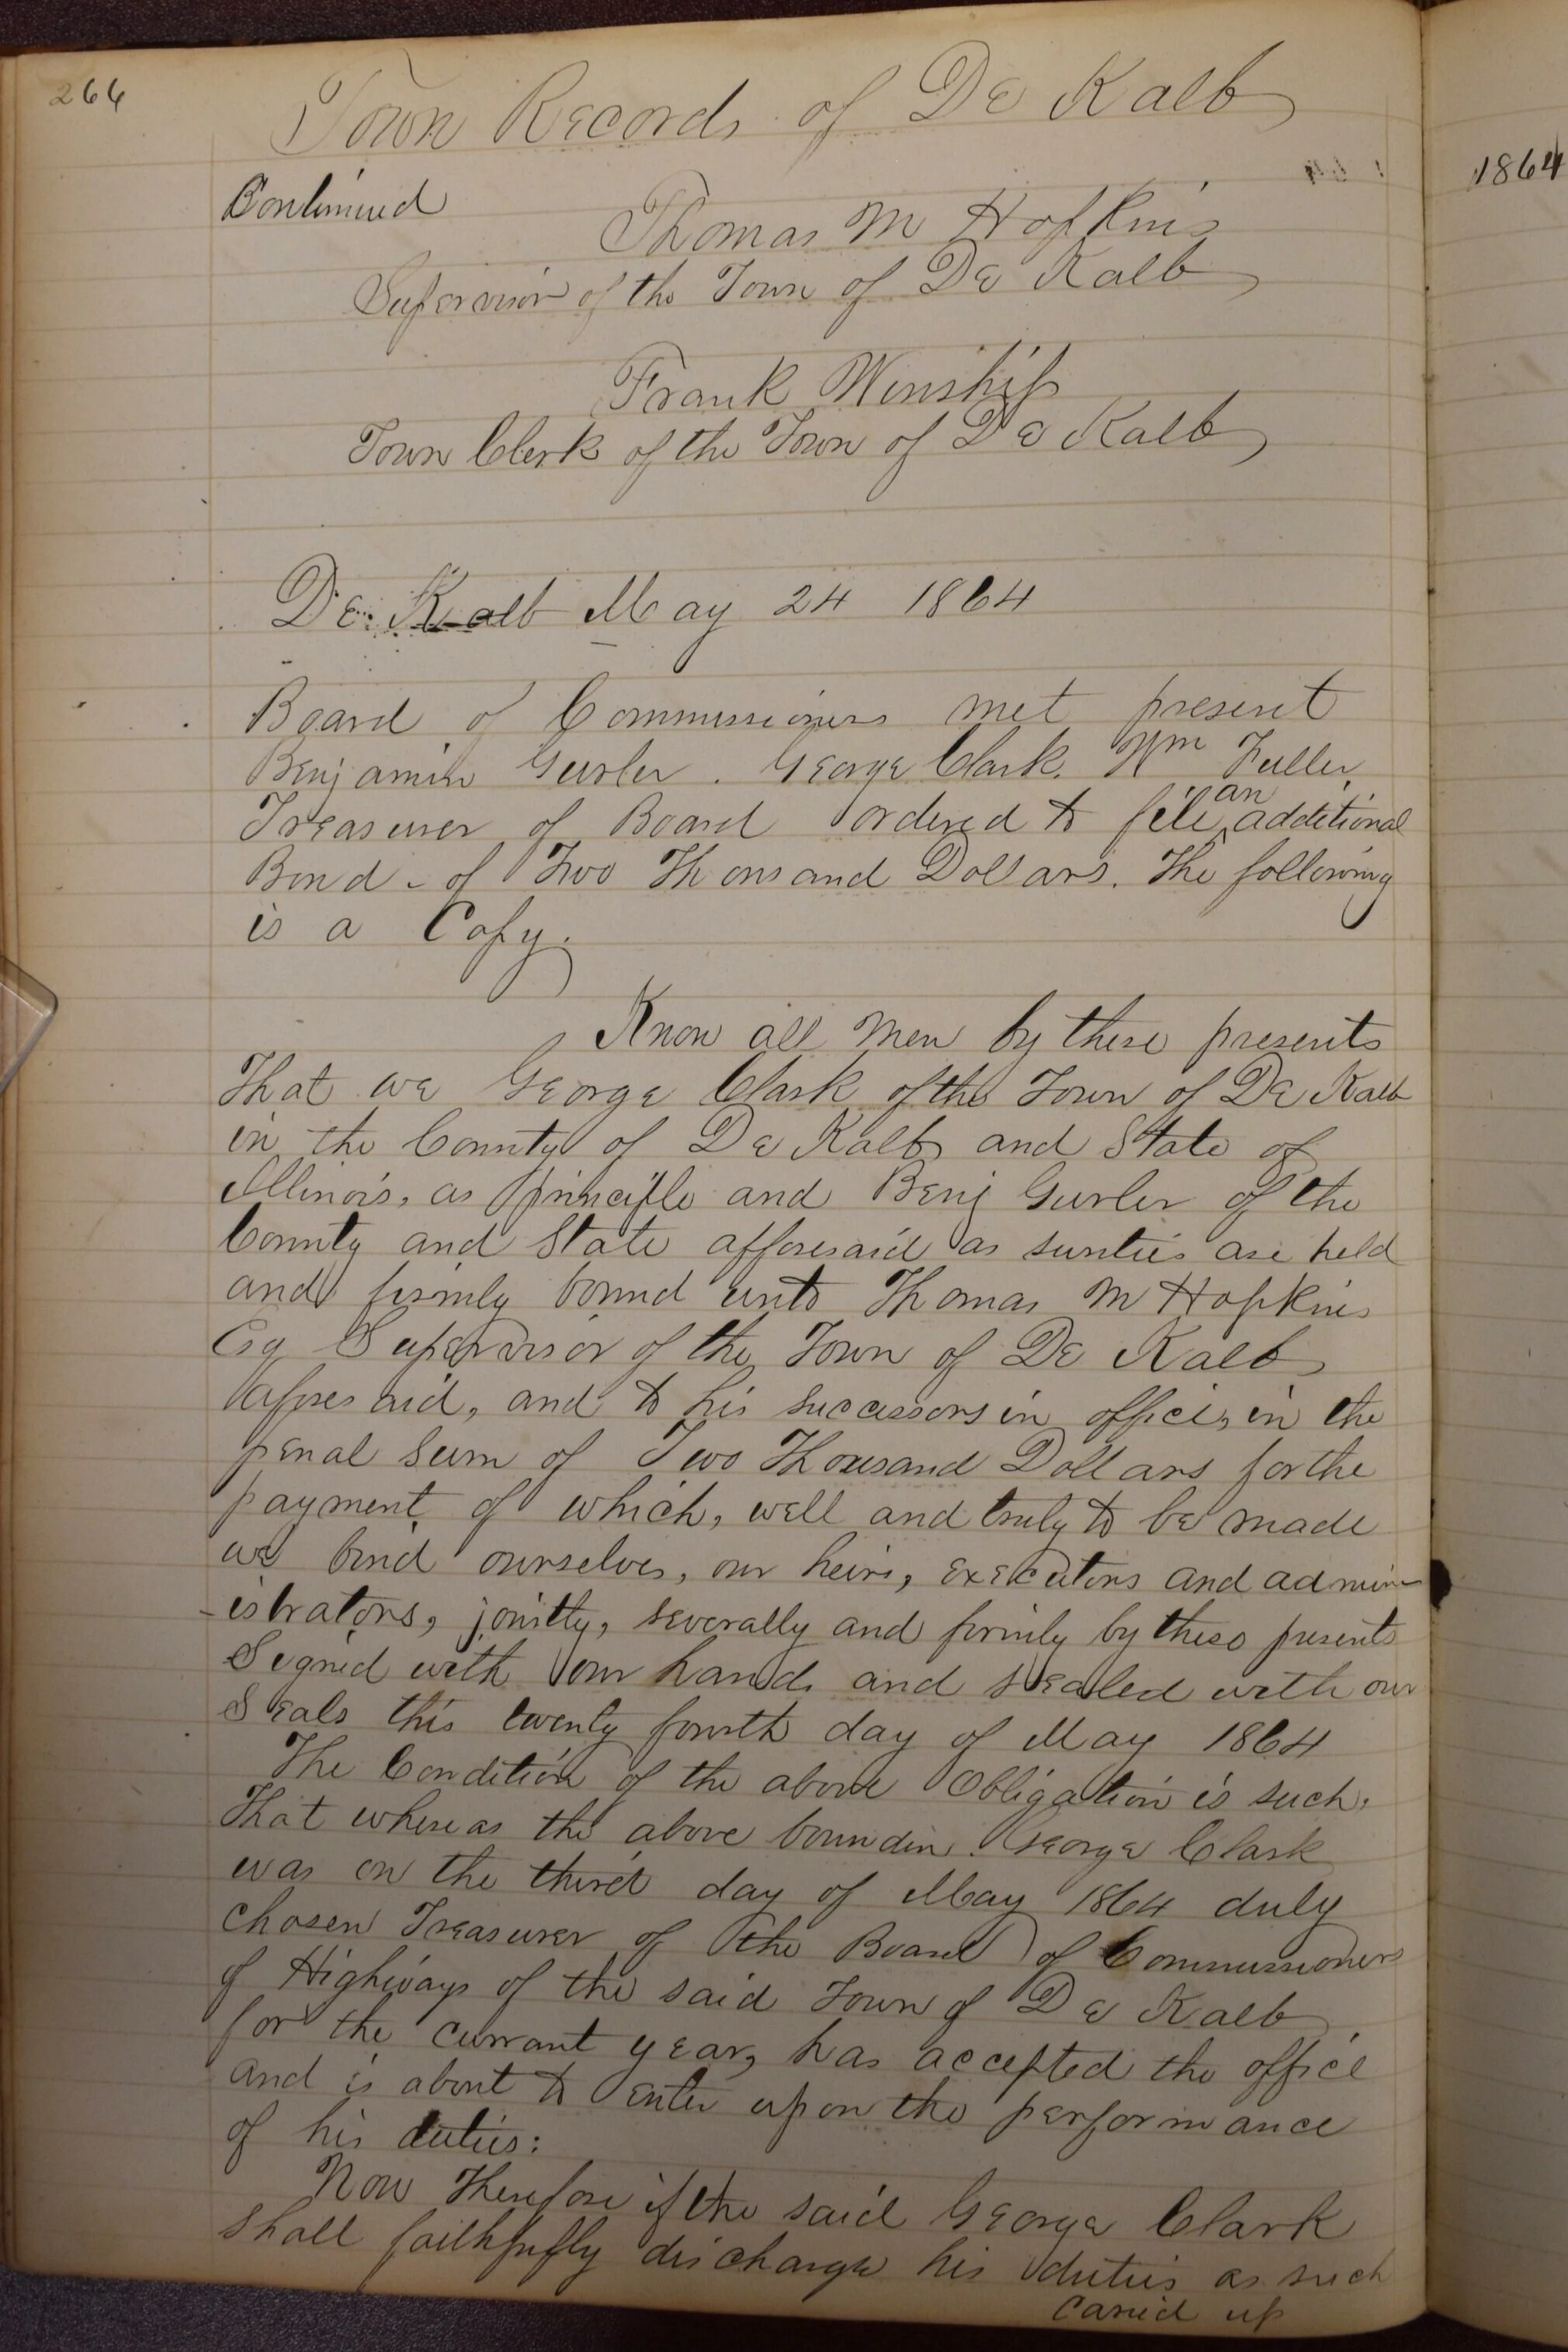 264
Town Records of De Kalb
1864
Continued
Thomas M Hopkins
Supervisor of the Town of De Kalb
Frank Winship
Town Clerk of the Town of De Kalb
De Kalb May 24 1864
Board of Commissioners met present
Benjamin Gurler. George Clark. Wm Fuller.
Treasurer of Board ordered to file an additional
Bond - of Two Thousand Dollars. The following
is a Copy.
Know all men by these presents
That we George Clark of the Town of De Kalb
in the County of De Kalb and State of
Illinois, as principle and Benj Gurler of the
County and State afforesaid as surties are held
and firmly bound unto Thomas M Hopkins
Esq Supervisor of the Town of De Kalb
afores aid, and to his successors in office, in the
penal sum of Two Thousand Dollars for the
payment of which, well and truly to be made
we bind ourselves, our heirs, executors and admin
-istrators, jointly, severally and firmly by these presents
Signed with our hands and sealed with our
Seals this twenty fourth day of May 1864
The Condition of the above Obligation is such.
That whereas the above bounden George Clark
was on the third day of May 1864 duly
chosen Treasurer of the Board of Commissioners
of Highways of the said Town of De Kalb,
for the currant year, has accepted the office
and is about to enter upon the performance
of his duties:
Now Therefore if the said George Clark
shall faithfully discharge his duties as such
Caried up